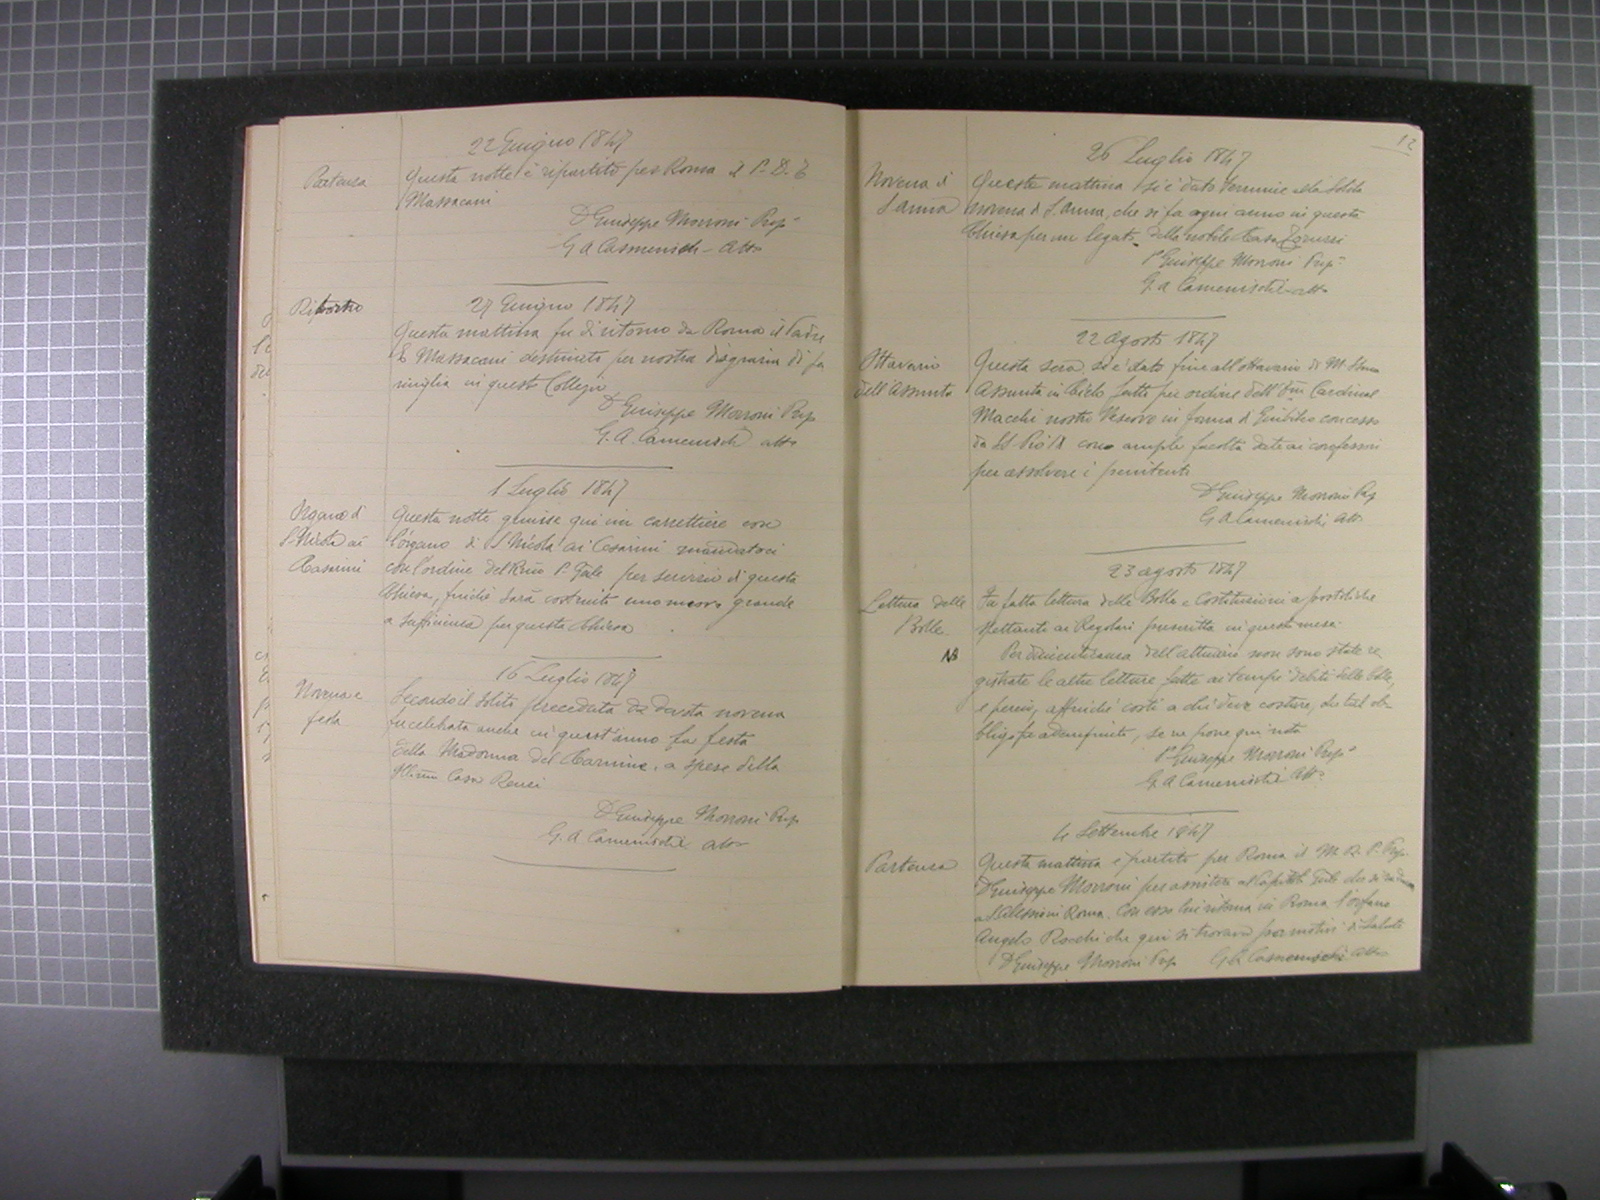 22 Giugno 1847
Partenza
Questa notte è ripartito per Roma il P. D. E
Massacani
D Giuseppe Morroni Prep
G A Camenisch - Atto
Ritorno
27 Giugno 1847
Questa mattina fu di ritorno da Roma il Padre
E Massacani destinato per nostra disgrazia di fa
miglia in questo Collegio
D Giuseppe Morroni Prep
G. A. Camenisch atto
1 Luglio 1847
Organo di
S Nicola ai
Cesarini
Questa notte giunse qui un carrettiere con
l'organo di S Nicola ai Cesarini mandatoci
con l'ordine del Rmo P. Gale per servizio di questa
Chiesa, finché sarà costruito uno nuovo grande
a sufficienza per questa Chiesa
16 Luglio 1847
Novena e
festa
Secondo il solito preceduta da devota novena
fu celebrata anche in quest'anno la festa
della Madonna del Carmine, a spese della
Casa Renei
D Giuseppe Morroni Prep
G. A Camenisch atto
12
26 Luglio 1847
Novena di
S anna
Questa mattina si è dato termine alla solita
novena di S. Anna, che si fa ogni anno in questa
Chiesa per un legato della nobile Casa
P Giuseppe Morroni Prep
G. A Camenisch atto
22 agosto 1847
Ottavario
dell'Assunta
Questa sera si è dato fine all'ottavario di M. SSma
Assunta in Cielo fatto per ordine dell'Emo Cardinal
Macchi nostro Vescovo in forma di Giubileo concesso
da Pio IX con ample facoltà date ai confessori
per assolvere i penitenti
D Giuseppe Morroni Prep
G A Camenisch Atto
23 agosto 1847
Lettura delle
Bolle
Fu fatta lettura delle Bolle e Costituzioni apostoliche
spettanti ai Regolari prescritta in questo mese.
NB
Per dimenticanza dell'attuario non sono state re
gistrate le altre letture fatte ai tempi debiti delle Bolle,
e perciò, affinché costi a chi deve costare, che tal ob-
bligo fu adempiuto, se ne pone qui nota
P. Giuseppe Morroni Prep
G. A Camenisch Atto
4 Settembre 1847
Partenza
Questa mattina è partito per Roma il M. R. P. Prep.
D Giuseppe Morroni per assistere al Capitolo Gale che si
a S Alessio in Roma. Con esso lui ritorna in Roma l'orfano
Angelo Rocchi che qui si trovava per motivi di salute
D Giuseppe Morroni Prep G A Camenisch atto